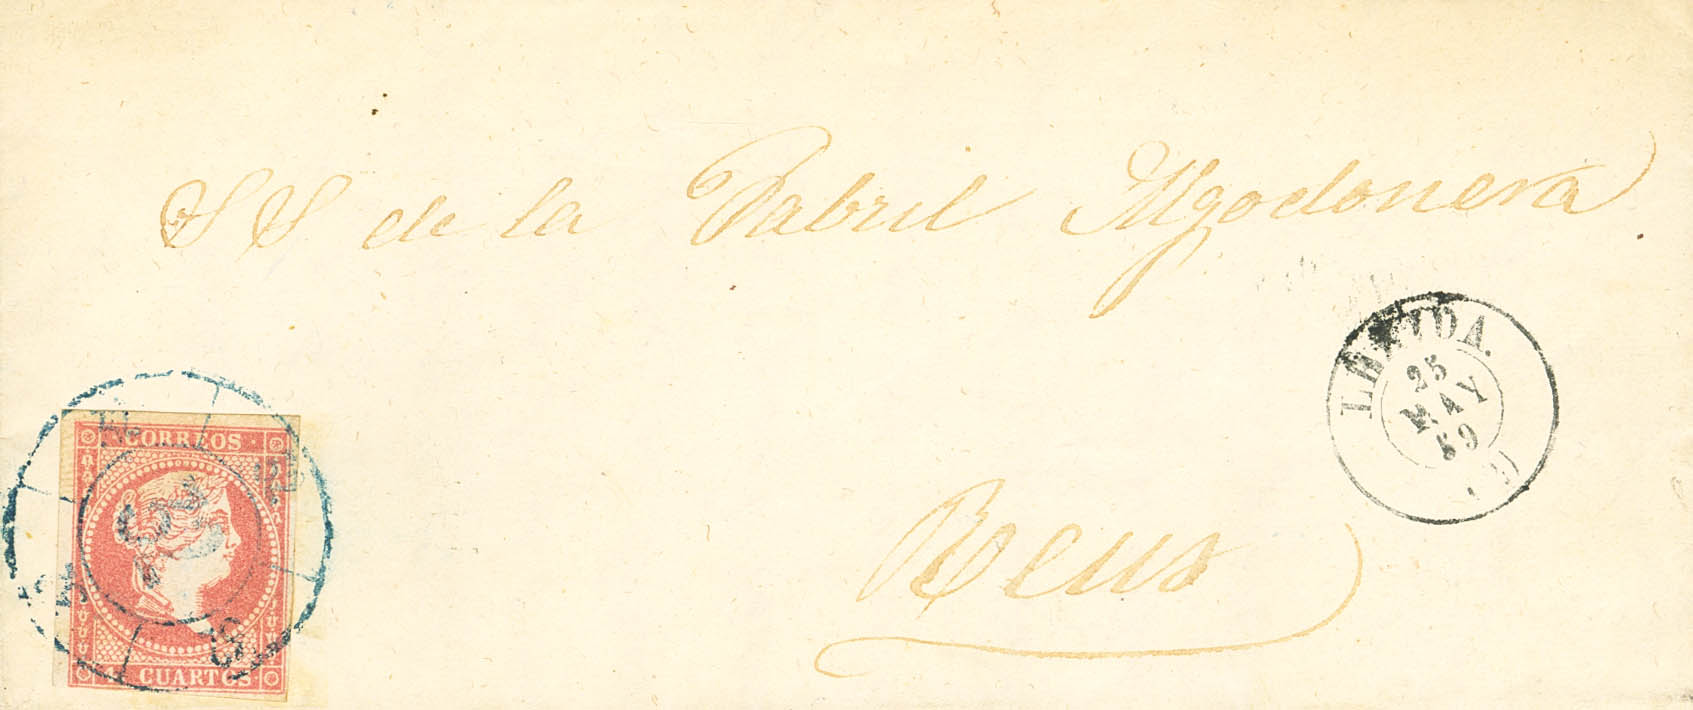 SS de la Fabril Algodonera
LERIDA.
25
MAY
59
(1)
CORREOS
Reus
4 CUARTOS